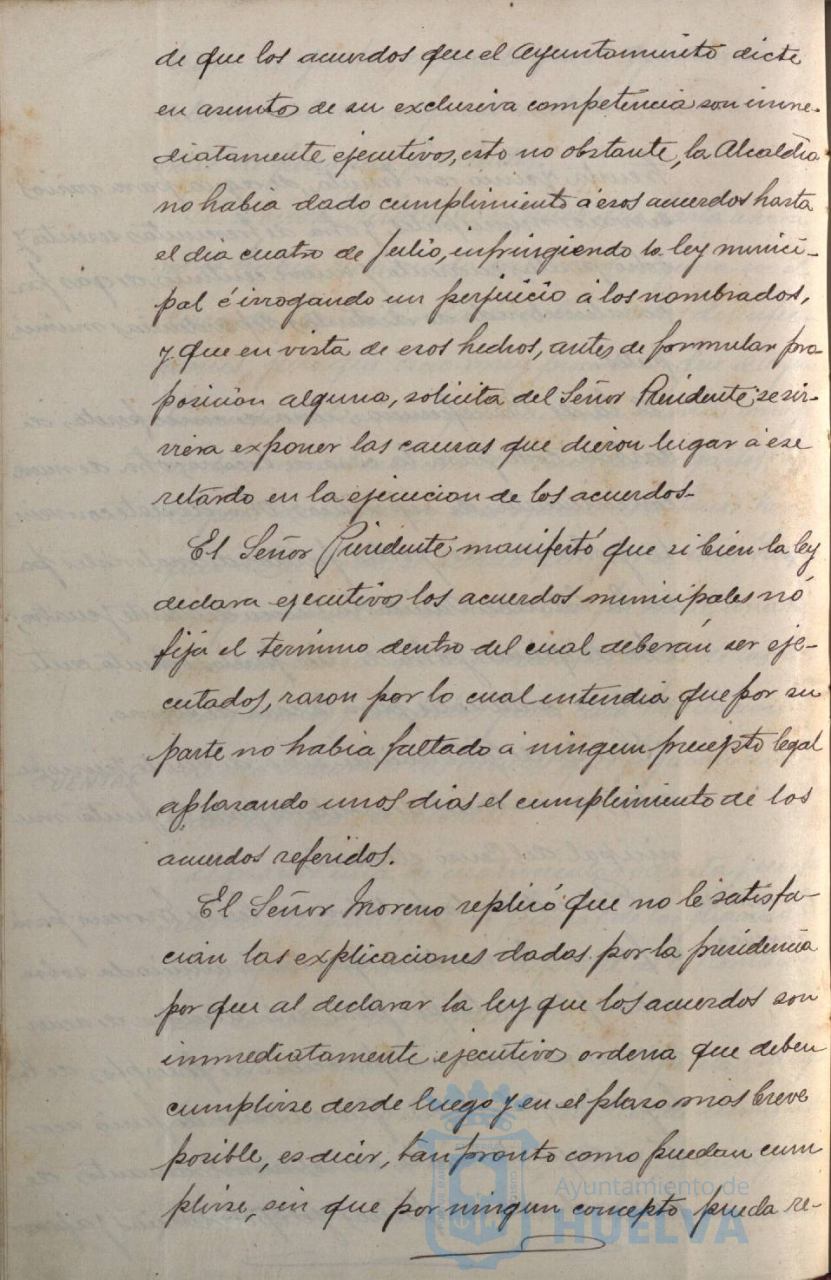 de que los acuerdos que el Ayuntamiento dicte
en asuntos de su exclusiva competencia son inme-
diatamente ejecutivos, esto no obstante, la Alcaldia
no habia dado cumplimiento á esos acuerdos hasta
el dia cuatro de Julio, infringiendo la ley munici-
pal é irrogando un perjuicio á los nombrados,
y que en vista de esos hechos, antes de formular pro-
posición alguna, solicita del Señor Presidente se sir-
viera exponer las causas que dieron lugar á ese
retardo en la ejecucion de los acuerdos-
El Señor Presidente manifestó que si bien la ley
declara ejecutivos los acuerdos municipales nó
fija el termino dentro del cual deberán ser eje-
cutados, rason por lo cual entendia que por su
parte no habia faltado á ningun precepto legal
aplasando unos dias el cumplimiento de los
acuerdos referidos.
El Señor Moreno replicó que no le satisfa-
cian las explicaciones dadas por la presidencia
por que al declarar la ley que los acuerdos son
inmediatamente ejecutivos ordena que deben
cumplirse desde luego y en el plaso mas breve
posible, es decir, tan pronto como puedan cum
plirse, sin que por ningun concepto pueda re-
Ayuntamiento de
HUELVA